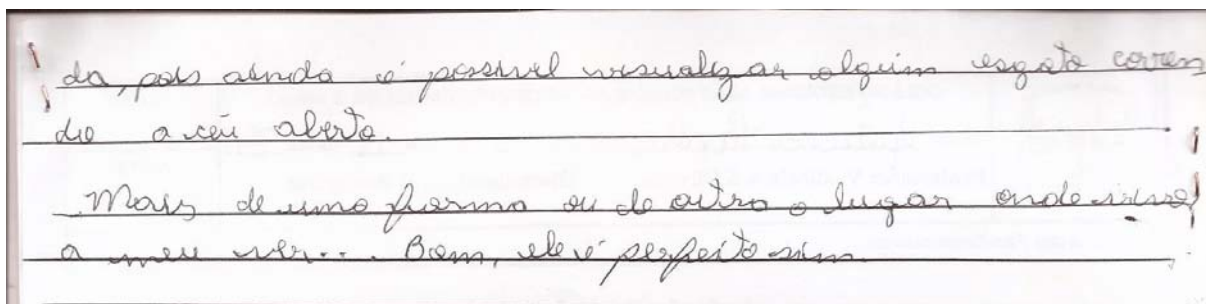 da, pois ainda é possível visualizar algum esgoto corren
do a céu aberto.
Mais de uma forma ou de outra o lugar onde vivo,
a meu ver... Bom, ele é perfeito sim.